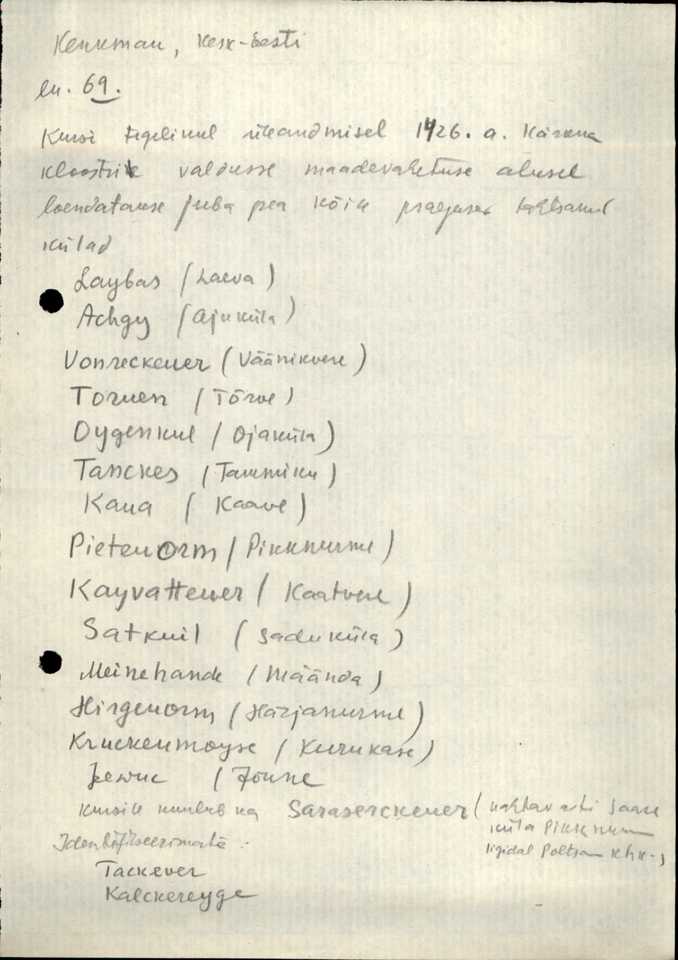 Kenkman, Kesk-Eesti
lk. 69.
Kursi kihelkonna üleandmisel 1426. a. Kärkna
kloostri valdusse maadevahetuse alusel
loendatakse juba pea kõik praegused
külad
Laybas (Laeva)
Achgy (Ajuküla)
Vonreckever (Väänikvere)
Torven (Tõrve)
Oygenkul (Ojaküla)
Tanckes (Tammiku)
Kaua (Kaave)
Pietenorm (Pikknurme)
Kayvattever (Kaatvere)
Satkuil (Saduküla)
Meinehande (Mäända)
Hirgenorm (Härjanurme)
Kruckenmoyse (Kurukase)
Jewuc (Jõune
Kursile kuulub ka Saraserckever (nähtavasti Saare
küla Pikknurme
ligidal Põltsam. khk-s
Identifitseerimata:
Tackever
Kalckereyge